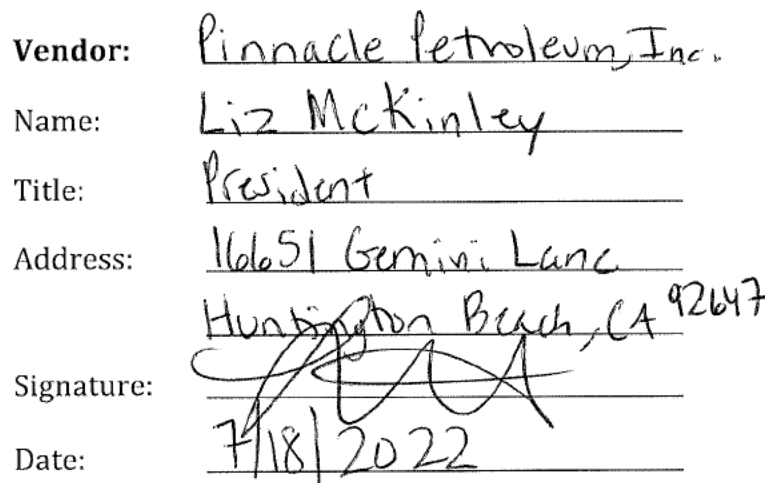 Vendor: Pinnacle Petroleum, Inc.
Name: Liz McKinley
Title: President
Address: 16651 Gemini Lane
Huntington Beach, CA 92647
Signature:
Date: 7/18/2022